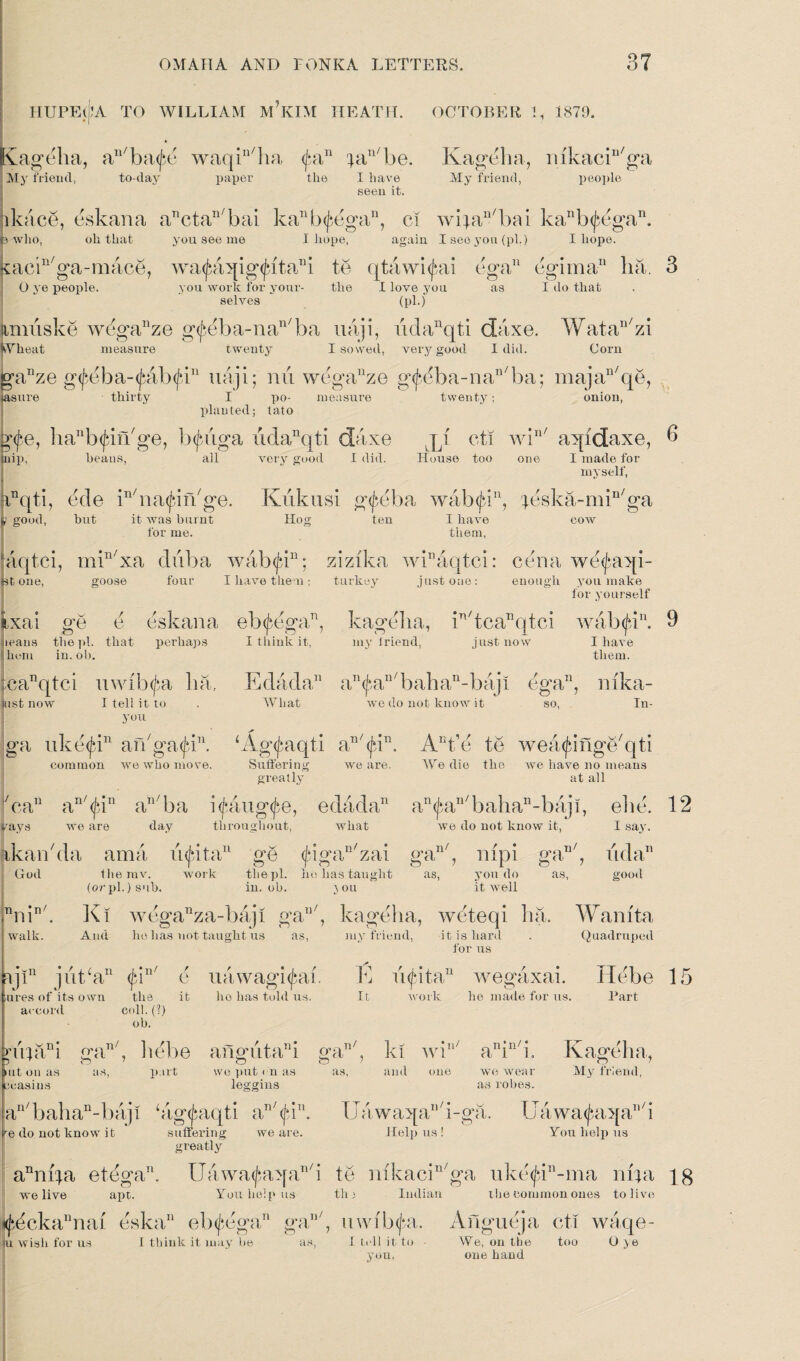 OMAHA AND PONKA LETTERS. 37
HUPE¢A TO WILLIAM M’KIM HEATH. OCTOBER 1, 1879.
Kagéha, aⁿ′ba¢é waqiⁿ′ha ¢aⁿ ʇaⁿ′be. Kagéha, níkaciⁿ′ga
My friend, to-day paper the I have My friend, people
seen it.
ikácĕ, éskana aⁿctaⁿ′bai kaⁿb¢égaⁿ, cĭ wiʇaⁿ′bai kaⁿb¢égaⁿ.
who, oh that you see me I hope, again I see you (pl.) I hope.
kaciⁿ′ga-mácĕ, wa¢áʞig¢ítaⁿi tĕ qtáwi¢ai égaⁿ égimaⁿ hă. 3
O ye people. you work for your- the I love you as I do that .
selves (pl.)
amúskĕ wégaⁿze g¢éba-naⁿ′ba uáji, údaⁿqti ḓáxe. Wataⁿ′zi
Wheat measure twenty I sowed, very good I did. Corn
gaⁿze g¢éba-¢áb¢iⁿ uáji; nú wégaⁿze g¢éba-naⁿ′ba; majaⁿ′qĕ,
asure thirty I po- measure twenty; onion,
planted; tato
g¢e, haⁿb¢iñ′ge, b¢úga údaⁿqti ḓáxe ʇí ctĭ wiⁿ′ aʞíḓaxe, 6
nip, beans, all very good I did. House too one I made for
myself,
aⁿqti, éde iⁿ′na¢iñ′ge. Kúkusi g¢éba wáb¢iⁿ, ʇéskă-miⁿ′ga
y good, but it was burnt Hog ten I have cow
for me. them,
áqtci, miⁿ′xa dúba wáb¢iⁿ; zizíka wiⁿáqtci: céna wé¢aʞi-
st one, goose four I have them; turkey just one: enough you make
for yourself
xai gĕ é éskana eb¢égaⁿ, kagéha, iⁿ′tcaⁿqtci wáb¢iⁿ. 9
means the pl. that perhaps I think it, my friend, just now I have
hem in. ob. them.
tcaⁿqtci uwíb¢a hă, Edádaⁿ aⁿ¢aⁿ′bahaⁿ-bájĭ égaⁿ, níka-
just now I tell it to . What we do not know it so, In-
you
ga uké¢iⁿ añ′ga¢iⁿ. ‘Ág¢aqti aⁿ′¢iⁿ. Aⁿt’é tĕ weá¢iñgĕ′qti
common we who move. Suffering we are. We die the we have no means
greatly at all
′caⁿ aⁿ′¢iⁿ aⁿ′ba i¢áug¢e, edádaⁿ aⁿ¢aⁿ′bahaⁿ-bájĭ, ehé. 12
ways we are day throughout, what we do not know it, I say.
akan′da amá ú¢itaⁿ gĕ ¢igaⁿ′zai gaⁿ′, nípi gaⁿ′, údaⁿ
God the mv. work the pl. he has taught as, you do as, good
(or pl.) sub. in. ob. you it well
ⁿniⁿ′. Kĭ wégaⁿza-bájĭ gaⁿ′, kagéha, wéteqi hă. Waníta
walk. And he has not taught us as, my friend, it is hard . Quadruped
for us
ajĭⁿ jút‘aⁿ ¢iⁿ′ é uáwagi¢aí. É ú¢itaⁿ wegáxai. Hébe 15
tures of its own the it he has told us. It work he made for us. Part
accord coll. (?)
ob.
gúʇăⁿi gaⁿ′, hébe añgútaⁿi gaⁿ′, kĭ wiⁿ′ aⁿiⁿ′i. Kagéha,
put on as as, part we put on as as, and one we wear My friend,
ccasins leggins as robes.
aⁿ′bahaⁿ-bájĭ ‘ág¢aqti aⁿ′¢iⁿ. Uáwaʞaⁿ′i-gă. Uáwa¢aʞaⁿ′i
we do not know it suffering we are. Help us! You help us
greatly
aⁿníʇa etégaⁿ. Uáwa¢aʞaⁿ′i tĕ níkaciⁿ′ga uké¢iⁿ-ma níʇa 18
we live apt. You help us the Indian the common ones to live
¢éckaⁿnaí éskaⁿ eb¢égaⁿ gaⁿ′, uwíb¢a. Añguéja ctĭ wáqe-
u wish for us I think it may be as, I tell it to We, on the too O ye
you, one hand